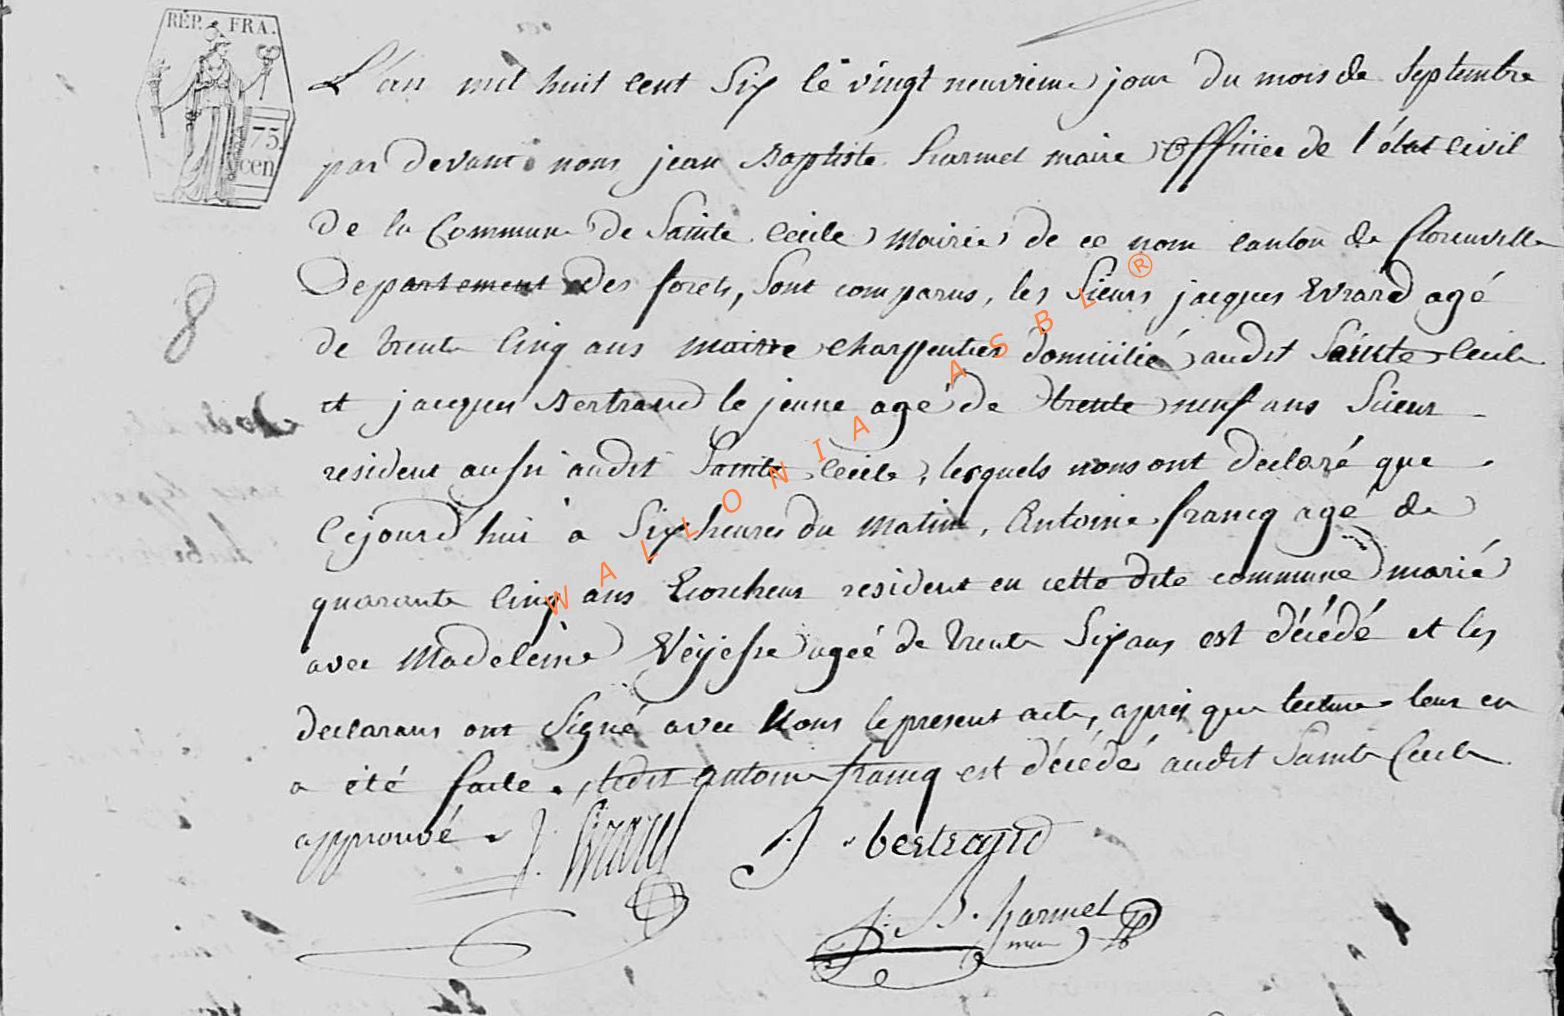 RÉP. FRA.
75.
cen
L'an mil huit cent Six le vingt neuvieme jour du mois de Septembre
par devant nous jean Baptiste harmel maire Officier de l'état Civil
de la Commune de Sainte Cecile mairie de ce nom canton de florenville
Departement des forets, sont comparus, les Sieurs jacques Evrard agé
de trente Cinq ans maitre charpentier domicilié audit Sainte Cecile
et jacques Bertrand le jeune agé de trente neuf ans Scieur
resident aussi audit Sainte Cecile, lesquels nous ont declaré que
Cejourd'hui a Six heures du matin, Antoine francq agé de
quarante Cinq ans Ecorcheur resident en cette dite commune marié
avec Madeleine agée de trente Six ans est décédé et les
declarans ont Signé avec Nous le present acte, apres que lecture leur en
a été faite. ledit antoine francq est décédé audit Sainte Cecile
approuvé.
J. Evrard
J. bertrand
J. B. harmel
8
WALLONIA ASBL ®